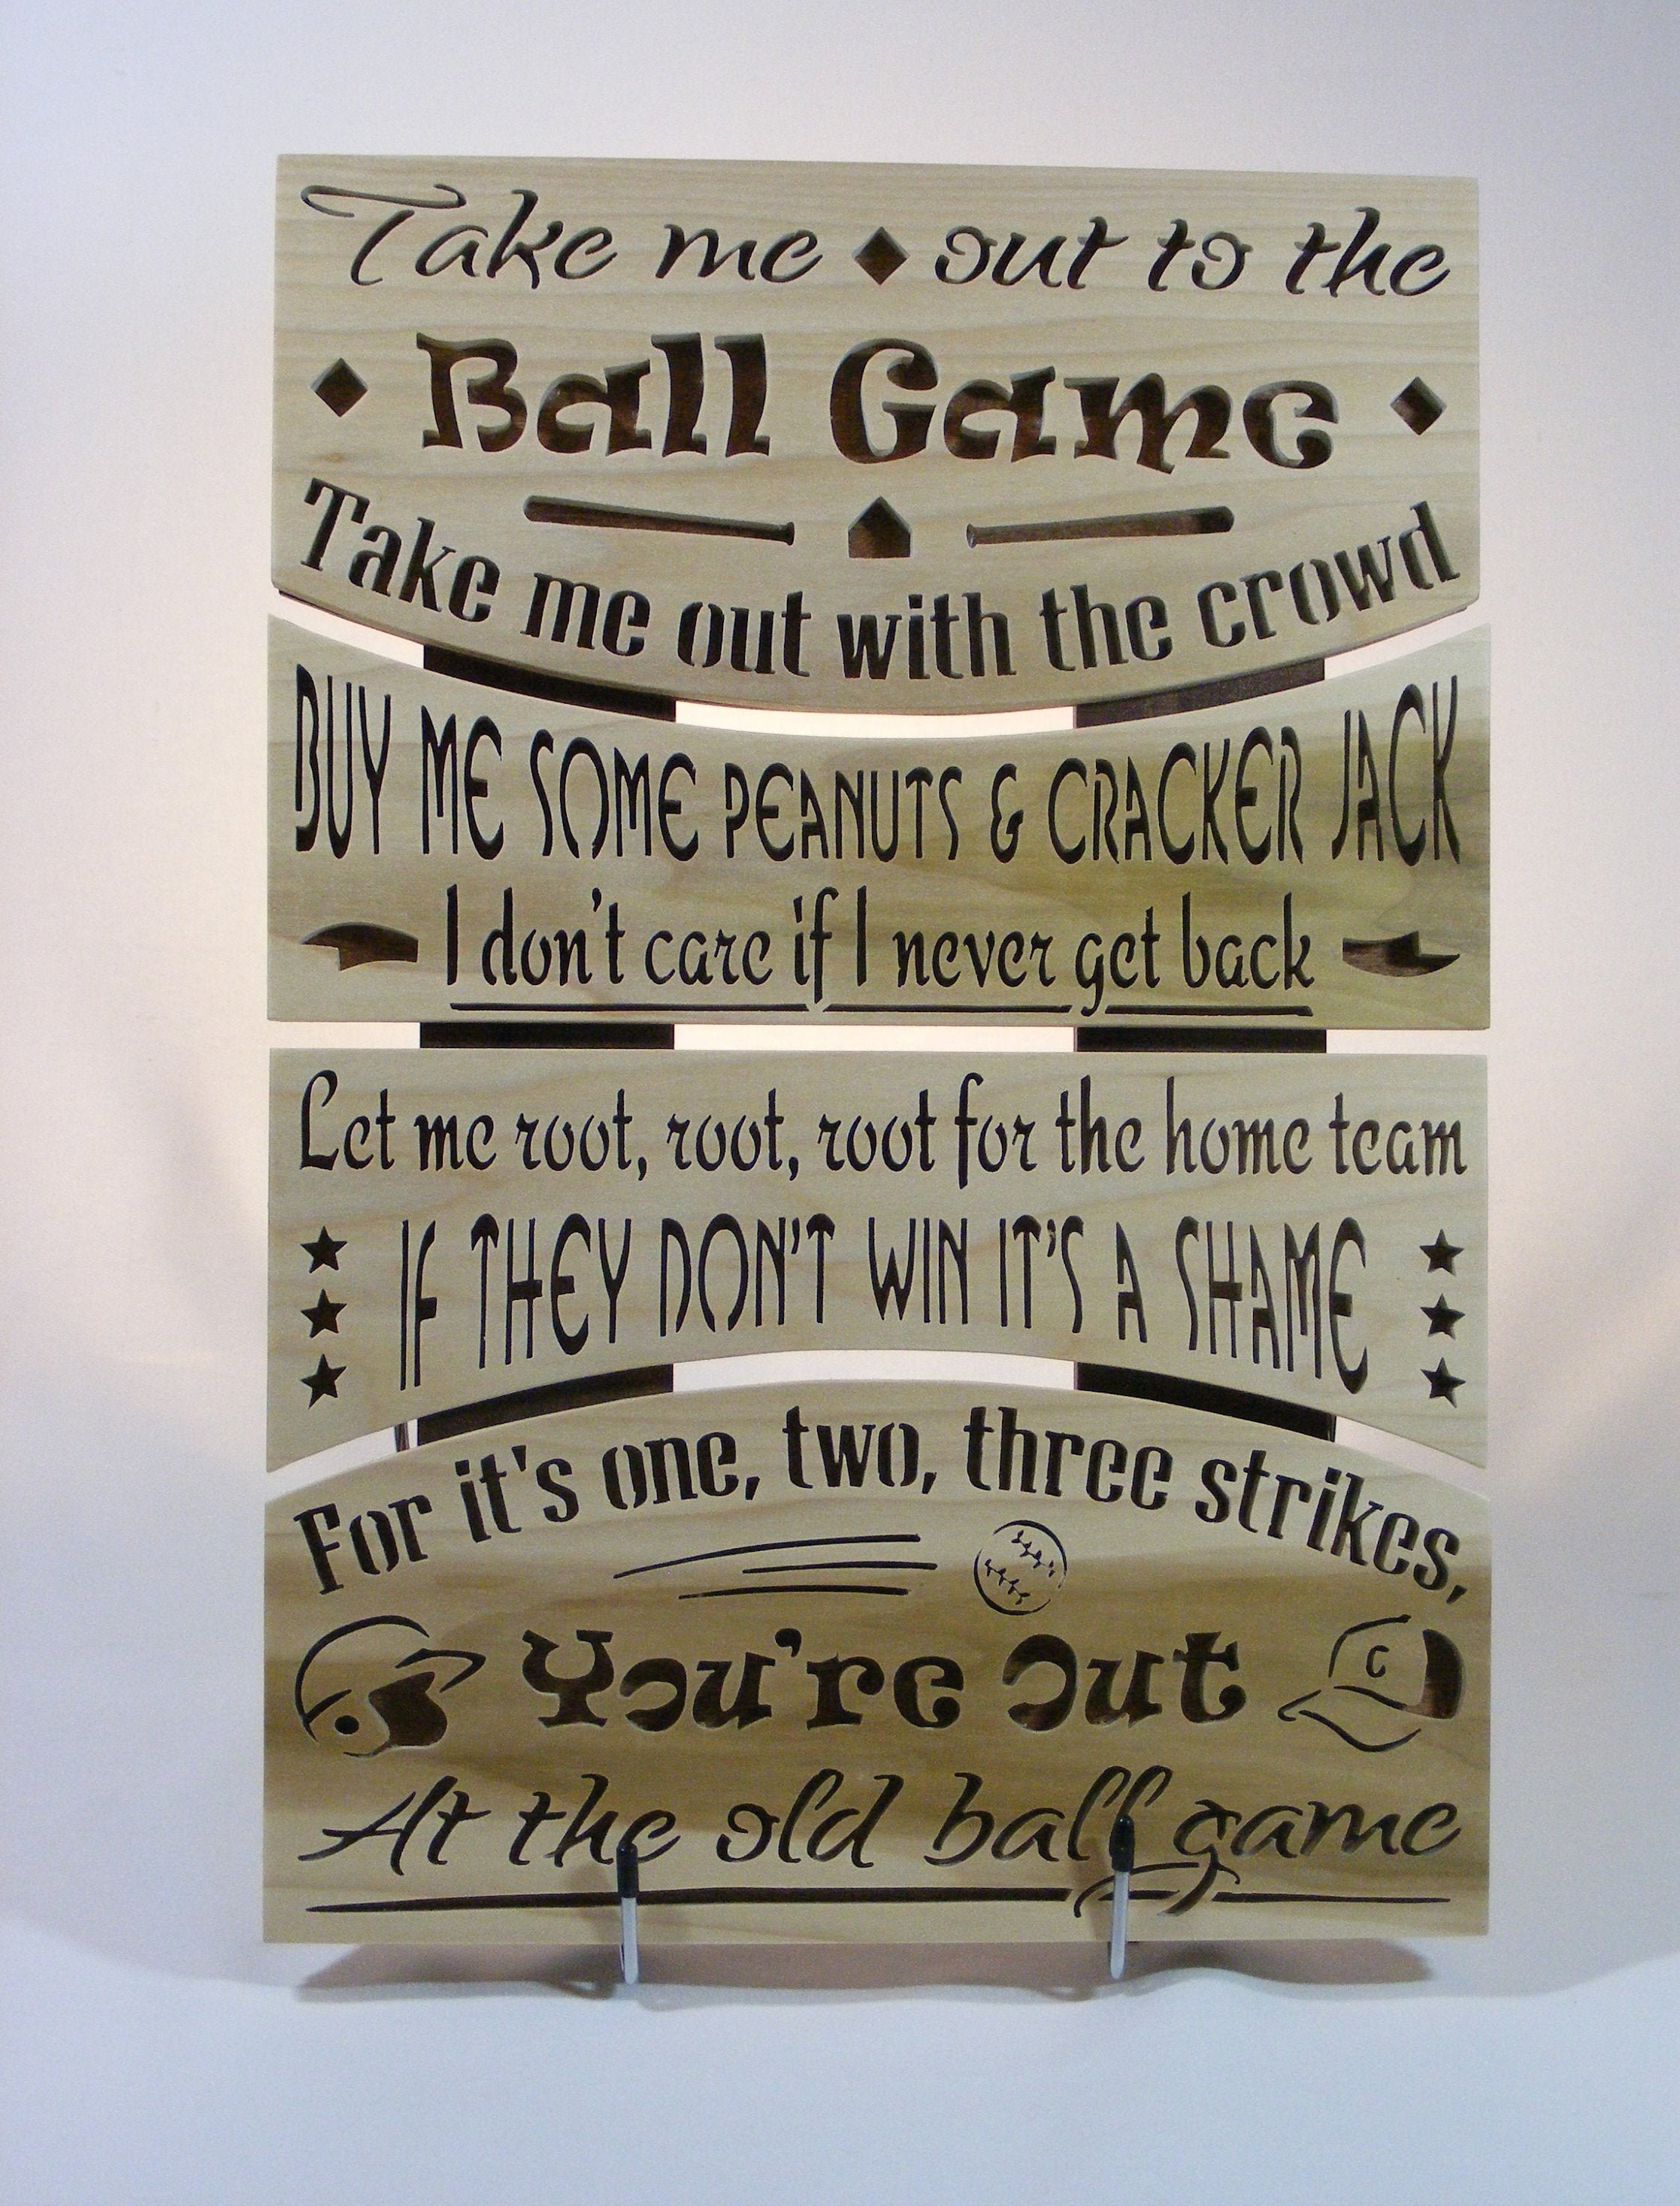 Take me out to the
Ball Game
Take me out with the crowd
BUY ME SOME PEANUTS & CRACKER JACK
I don't care if I never get back
Let me root, root, root for the home team
IF THEY DON'T WIN IT'S A SHAME
For it's one, two, three strikes,
C
You're Out
At the old ball game